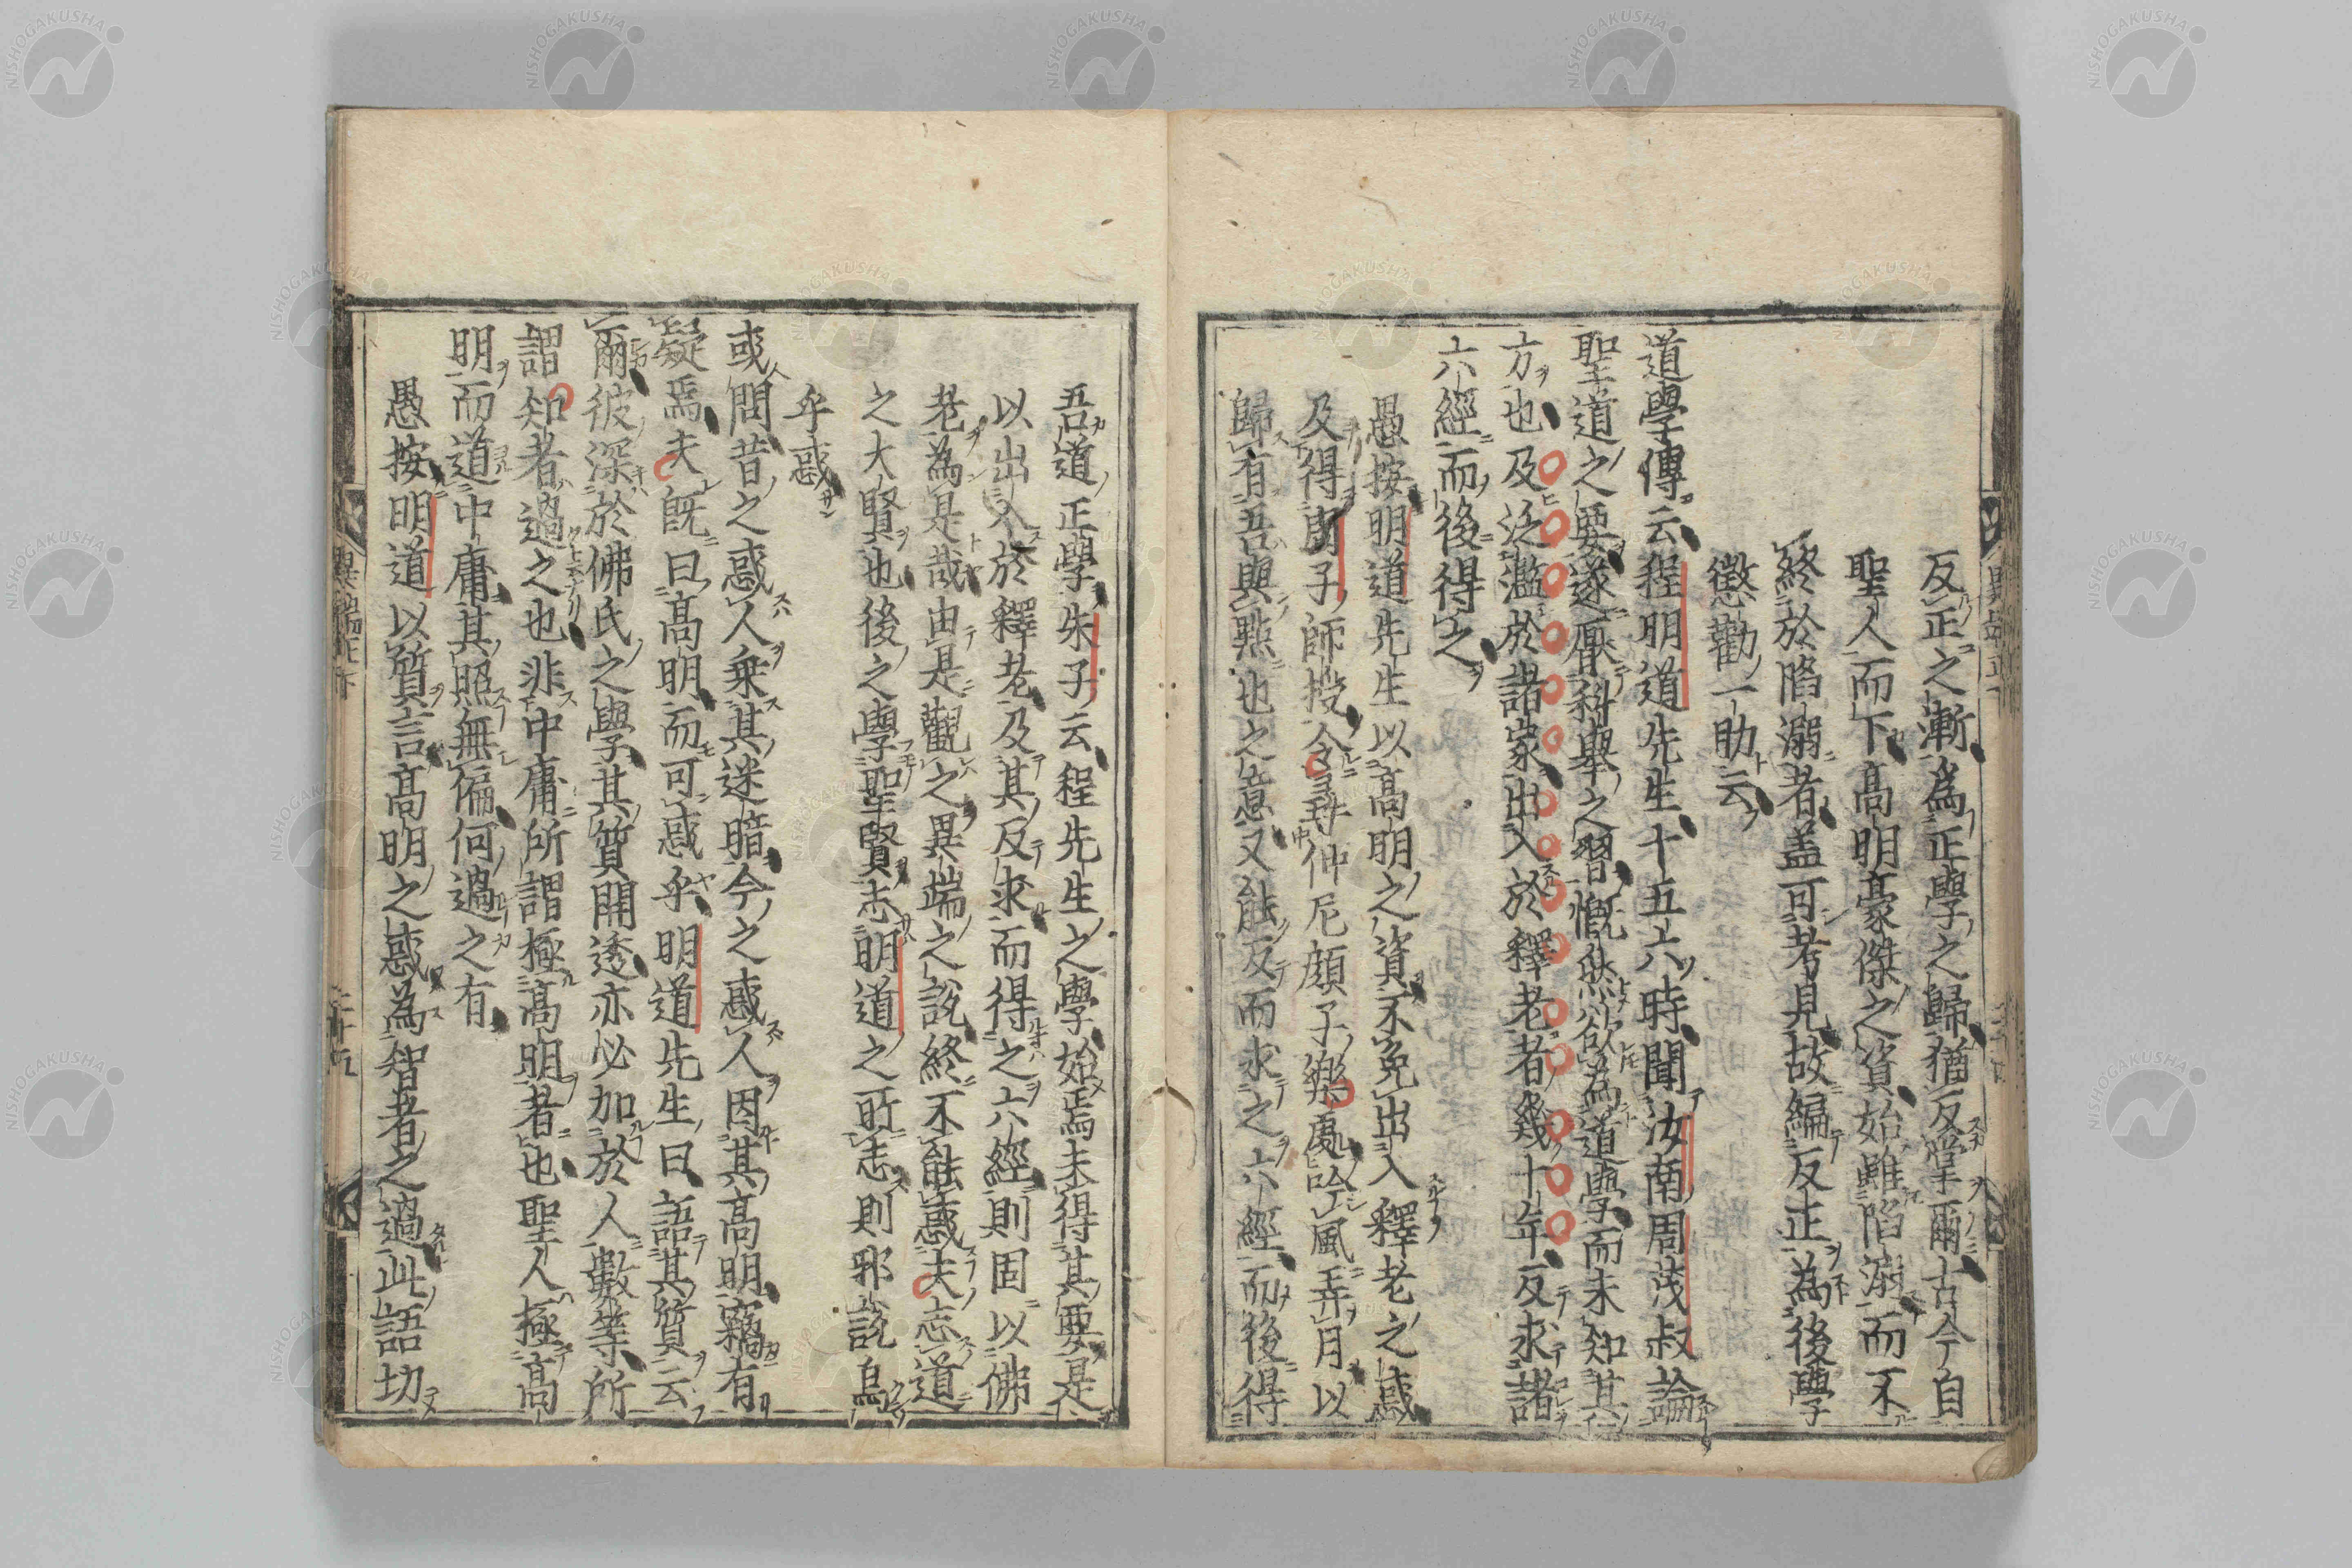 反正之漸為正學之歸猶反掌爾古今自
聖人而下高明豪傑之資始雖陷溺而不
終於陷溺者盖可考見故編反正為後學
懲勸一助云
道學傳云程明道先生十五六時聞汝南周茂叔論
聖道之要遂厭科舉之習慨然欲為道學而未知其
方也及泛濫於諸家出入於釋老者幾十年反求諸
六經而後得之
愚按明道先生以高明之資不免出入釋老之惑
及得周子師授令尋仲尼顔子樂處吟風弄月以
歸有吾與點也之意又能反而求之六經而後得
吾道正學朱子云程先生之學始焉未得其要是
以出入於釋老及其反求而得之六經則固以佛
老為是哉由是觀之異端之説終不能惑夫志道
之大賢也後之學聖賢志明道之所志則邪説烏
乎惑
或問昔之惑人乗其迷暗今之惑人因其高明竊有
疑焉夫既曰高明而可惑乎明道先生曰語其質云
爾彼深於佛氏之學其質開透亦必加於人數等所
謂知者過之也非中庸所謂極高明者也聖人極高
明而道中庸其照無偏何過之有
愚按明道以質言高明之惑為智者之過此語切
異端正下
NISHOGAKUSHA